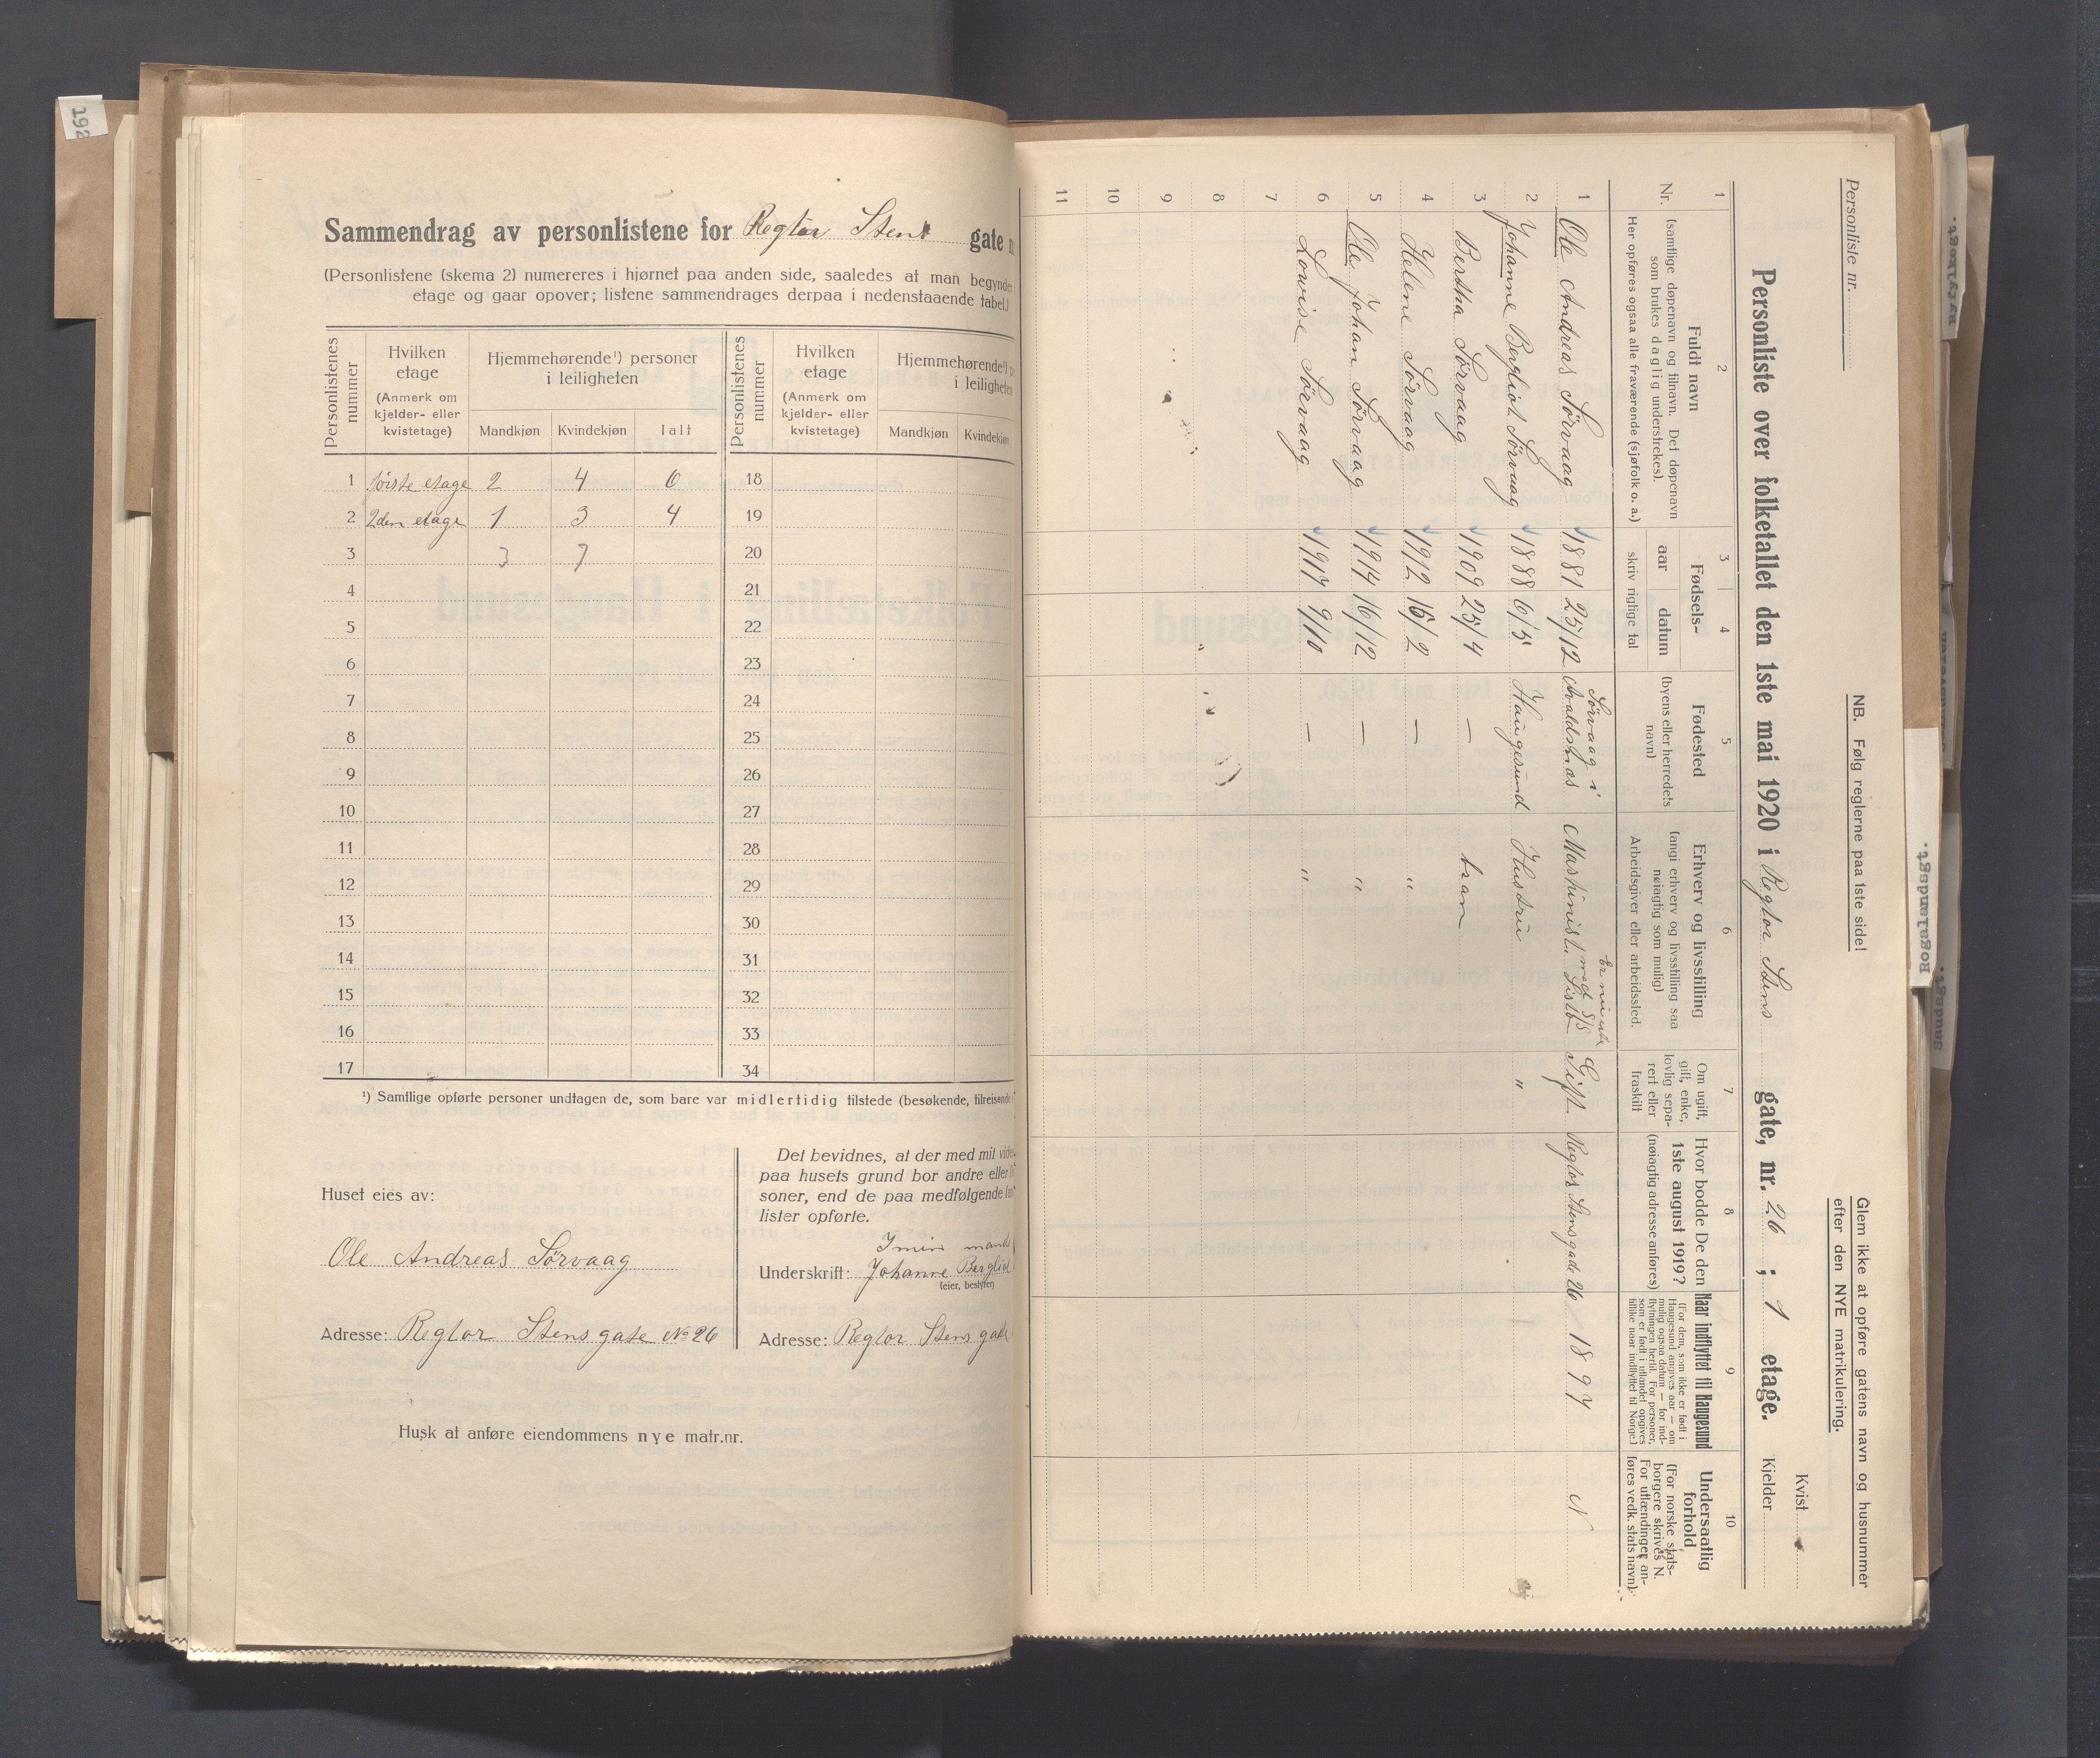 192
Sammendrag av personlistene for Regtor Stens gate
(Personlistene (skema 2) numereres i hjørnet paa anden side, saaledes at man begynder
etage og gaar opover; listene sammendrages derpaa i nedenstaaende tabel.)
Personlistenes nummer
Hvilken etage
(Anmerk om kjelder- eller kvistetage)
Hjemmehørende¹) personer i leiligheten
Mandkjøn Kvindekjøn Ialt
Personlistenes nummer
Hvilken etage
(Anmerk om kjelder- eller kvistetage)
Hjemmehørende¹)
i leiligheten
Mandkjøn Kvindekjøn
1 første etage 2 4 6 18
2 2den etage 1 3 4 19
3 3 7 20
4 21
5 22
6 23
7 24
8 25
9 26
10 27
11 28
12 29
13 30
14 31
15 32
16 33
17 34
¹) Samtlige opførte personer undtagen de, som bare var midlertidig tilstede (besøkende, tilreisende
Huset eies av:
Ole Andreas Sørvaag
Adresse: Regtor Stens gate No 26
Det bevidnes, at der med mit
paa husets grund bor andre eller
soner, end de paa medfølgende
lister opførte.
I min mands
Underskrift: Johanne Bergliot
(eier, bestyrer)
Adresse: Regtor Stens gate
Husk at anføre eiendommens nye matr.nr.
Personliste nr.
NB. Følg reglerne paa 1ste side!
Glem ikke at opføre gatens navn og husnummer
efter den NYE matrikulering.
Kvist
Kjelder
Personliste over folketallet den 1ste mai 1920 i Regtor Stens gate, nr. 26 ; 1 etage.
1 2 3 4 5 6 7 8 9 10
Nr.
Fuldt navn
(samtlige døpenavn og tilnavn. Det døpenavn
som brukes daglig understrekes).
Her opføres ogsaa alle fraværende (sjøfolk o. a.)
Fødsels-
aar datum
skriv rigtige tal
Fødested
(byens eller herredets
navn)
Erhverv og livsstilling
(angi erhverv og livsstilling saa
nøiagtig som mulig)
Arbeidsgiver eller arbeidssted.
Om ugift,
gift, enke,
lovlig sepa-
rert eller
fraskilt
Hvor bodde De den
1ste august 1919?
(nøiagtig adresse anføres)
Naar indflyttet til Haugesund
(For dem, som ikke er født i
Haugesund angives aar — om
mulig ogsaa datum — for ind-
flytningen hertil. For personer,
som er født i utlandet opgives
tillike naar indflyttet til Norge.)
Undersaatlig
forhold
(For norske stats-
borgere skrives N.
For utlændinger an-
føres vedk. stats navn).
1 Ole Andreas Sørvaag 1881 25/12 Sørvaag i Avaldsnes Maskinist Gift Regtor Stensgade 26 1897 N
2 Johanne Bergliot Sørvaag 1888 6/5 Haugesund Hustru "
3 Bertha Sørvaag 1909 25/4 — barn
4 Helene Sørvaag 1912 15/2 — "
5 Ole Johan Sørvaag 1914 16/12 — "
6 Lovise Sørvaag 1917 9/10 — "
7
8
9
10
11
Rogalandsgt.